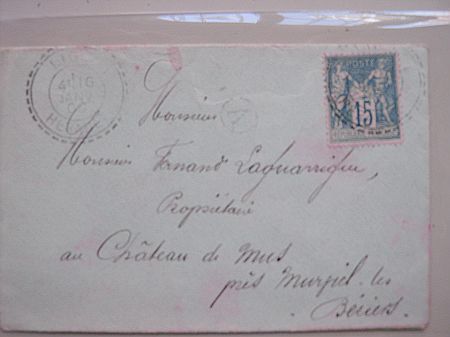 POSTE
15
Monsieur
Monsieur Fernand Laguarrigue,
Propriétaire
au Château de Mus
près Murviel-les
Béziers.